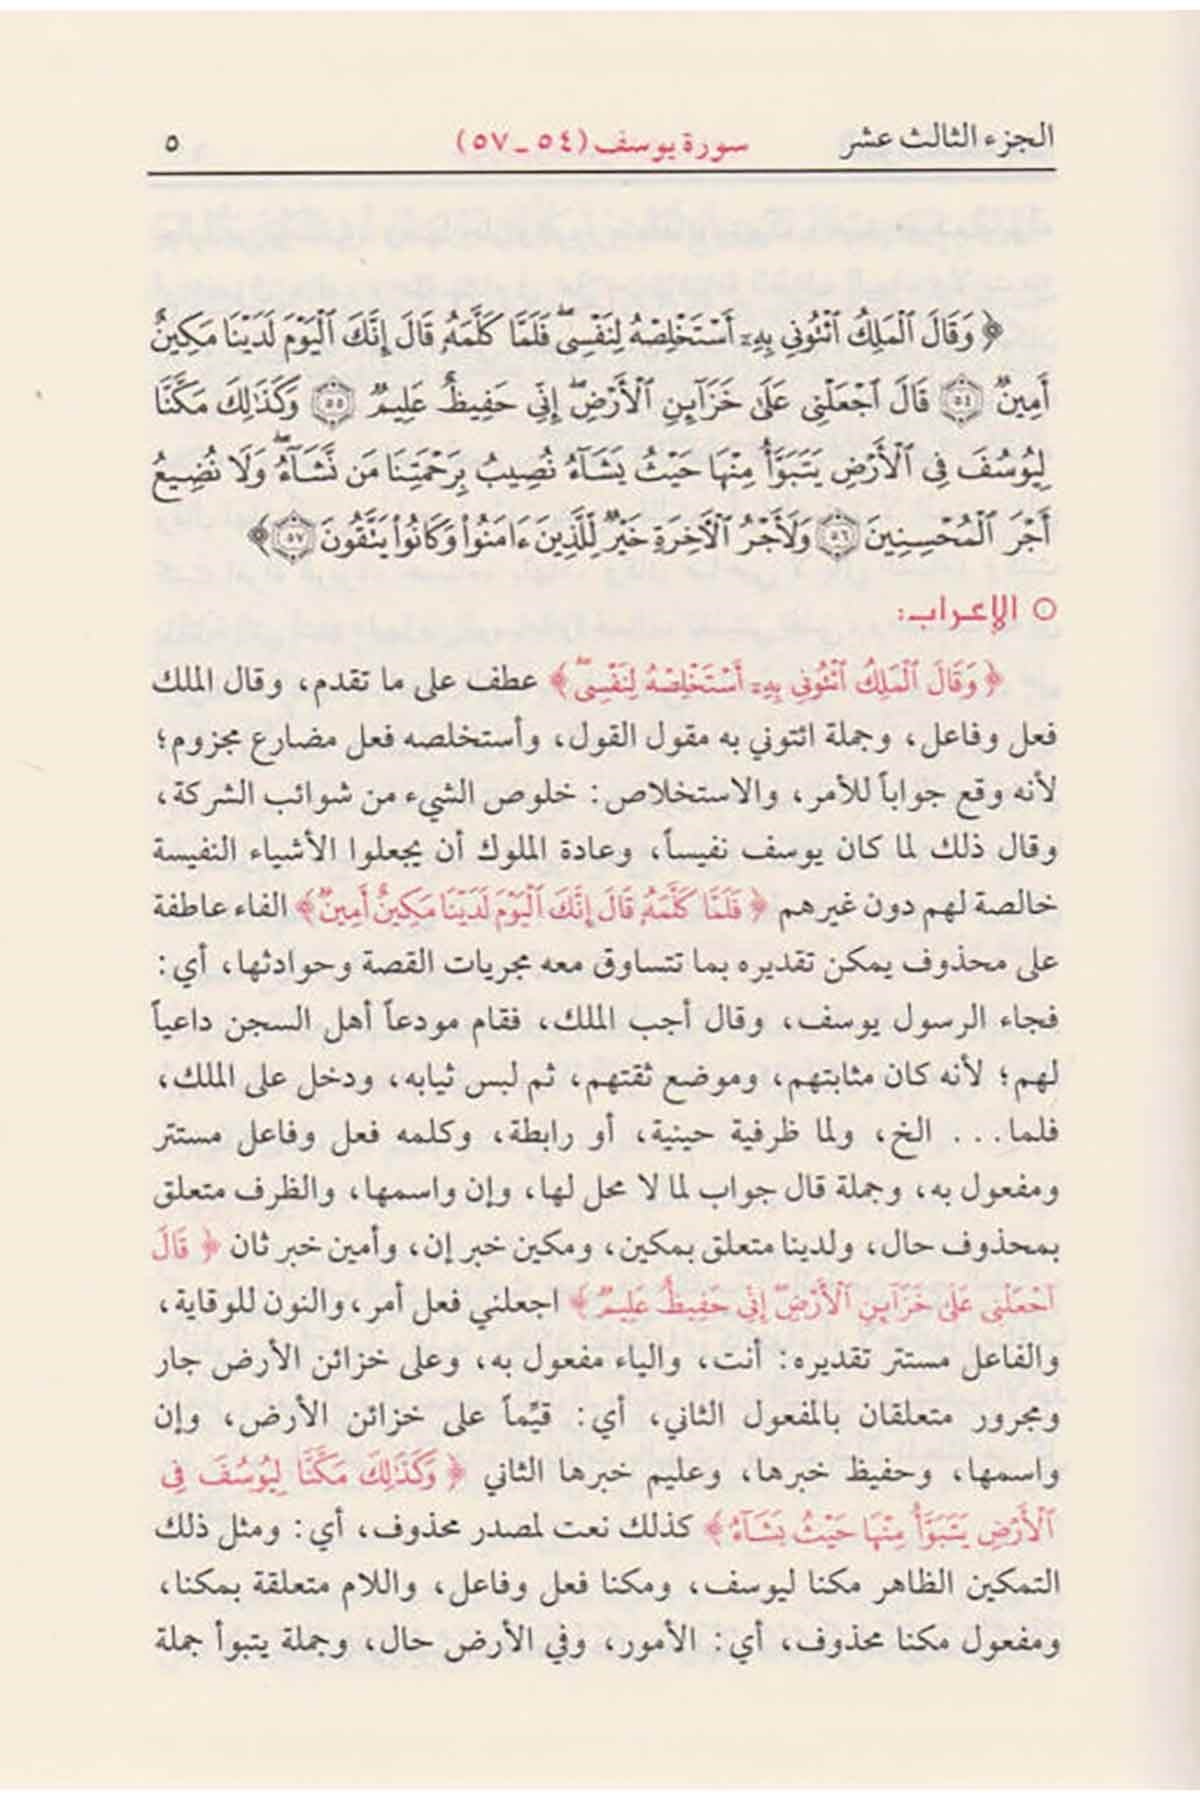 الجزء الثالث عشر سورة يوسف (٥٤ - ٥٧) ٥
﴿ وَقَالَ ٱلْمَلِكُ ٱئْتُونِي بِهِۦٓ أَسْتَخْلِصْهُ لِنَفْسِيۖ فَلَمَّا كَلَّمَهُۥ قَالَ إِنَّكَ ٱلْيَوْمَ لَدَيْنَا مَكِينٌ
أَمِينٌ ۝٥٤ قَالَ ٱجْعَلْنِي عَلَىٰ خَزَآئِنِ ٱلْأَرْضِۖ إِنِّي حَفِيظٌ عَلِيمٌ ۝٥٥ وَكَذَٰلِكَ مَكَّنَّا
لِيُوسُفَ فِي ٱلْأَرْضِ يَتَبَوَّأُ مِنْهَا حَيْثُ يَشَآءُ نُصِيبُ بِرَحْمَتِنَا مَن نَّشَآءُۖ وَلَا نُضِيعُ
أَجْرَ ٱلْمُحْسِنِينَ ۝٥٦ وَلَأَجْرُ ٱلْءَاخِرَةِ خَيْرٌ لِّلَّذِينَ ءَامَنُوا۟ وَكَانُوا۟ يَتَّقُونَ ۝٥٧ ﴾
○ الإعراب:
﴿ وَقَالَ ٱلْمَلِكُ ٱئْتُونِي بِهِۦٓ أَسْتَخْلِصْهُ لِنَفْسِيۖ ﴾ عطف على ما تقدم، وقال الملك
فعل وفاعل، وجملة ائتوني به مقول القول، وأستخلصه فعل مضارع مجزوم؛
لأنه وقع جواباً للأمر، والاستخلاص: خلوص الشيء من شوائب الشركة،
وقال ذلك لما كان يوسف نفيساً، وعادة الملوك أن يجعلوا الأشياء النفيسة
خالصة لهم دون غيرهم ﴿ فَلَمَّا كَلَّمَهُۥ قَالَ إِنَّكَ ٱلْيَوْمَ لَدَيْنَا مَكِينٌ أَمِينٌ ﴾ الفاء عاطفة
على محذوف يمكن تقديره بما تتساوق معه مجريات القصة وحوادثها، أي:
فجاء الرسول يوسف، وقال أجب الملك، فقام مودعاً أهل السجن داعياً
لهم؛ لأنه كان مثابتهم، وموضع ثقتهم، ثم لبس ثيابه، ودخل على الملك،
فلما... الخ، ولما ظرفية حينية، أو رابطة، وكلمه فعل وفاعل مستتر
ومفعول به، وجملة قال جواب لما لا محل لها، وإن واسمها، والظرف متعلق
بمحذوف حال، ولدينا متعلق بمكين، ومكين خبر إن، وأمين خبر ثان ﴿ قَالَ
ٱجْعَلْنِي عَلَىٰ خَزَآئِنِ ٱلْأَرْضِۖ إِنِّي حَفِيظٌ عَلِيمٌ ﴾ اجعلني فعل أمر، والنون للوقاية،
والفاعل مستتر تقديره: أنت، والياء مفعول به، وعلى خزائن الأرض جار
ومجرور متعلقان بالمفعول الثاني، أي: قيِّماً على خزائن الأرض، وإن
واسمها، وحفيظ خبرها، وعليم خبرها الثاني ﴿ وَكَذَٰلِكَ مَكَّنَّا لِيُوسُفَ فِي
ٱلْأَرْضِ يَتَبَوَّأُ مِنْهَا حَيْثُ يَشَآءُ ﴾ كذلك نعت لمصدر محذوف، أي: ومثل ذلك
التمكين الظاهر مكنا ليوسف، ومكنا فعل وفاعل، واللام متعلقة بمكنا،
ومفعول مكنا محذوف، أي: الأمور، وفي الأرض حال، وجملة يتبوأ جملة